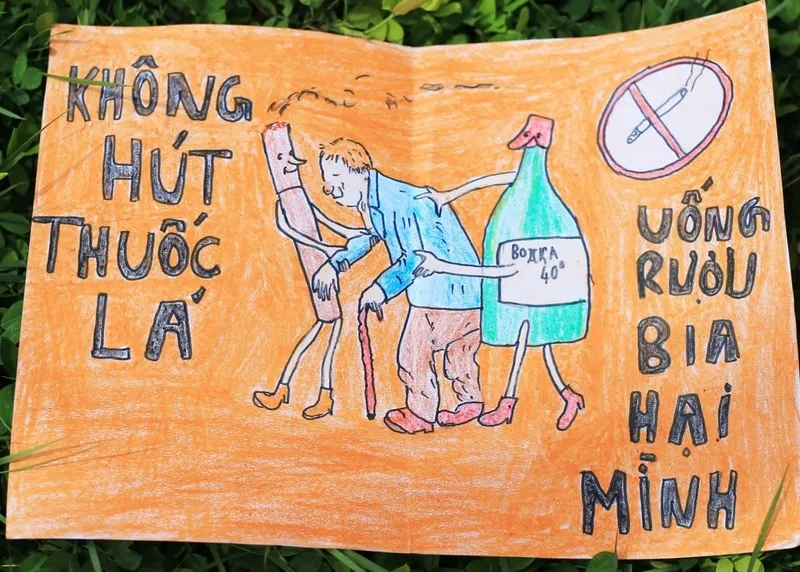 KHÔNG
HÚT
THUỐC
LÁ
ВОДКА
40°
UỐNG
RƯỢU
BIA
HẠI
MÌNH